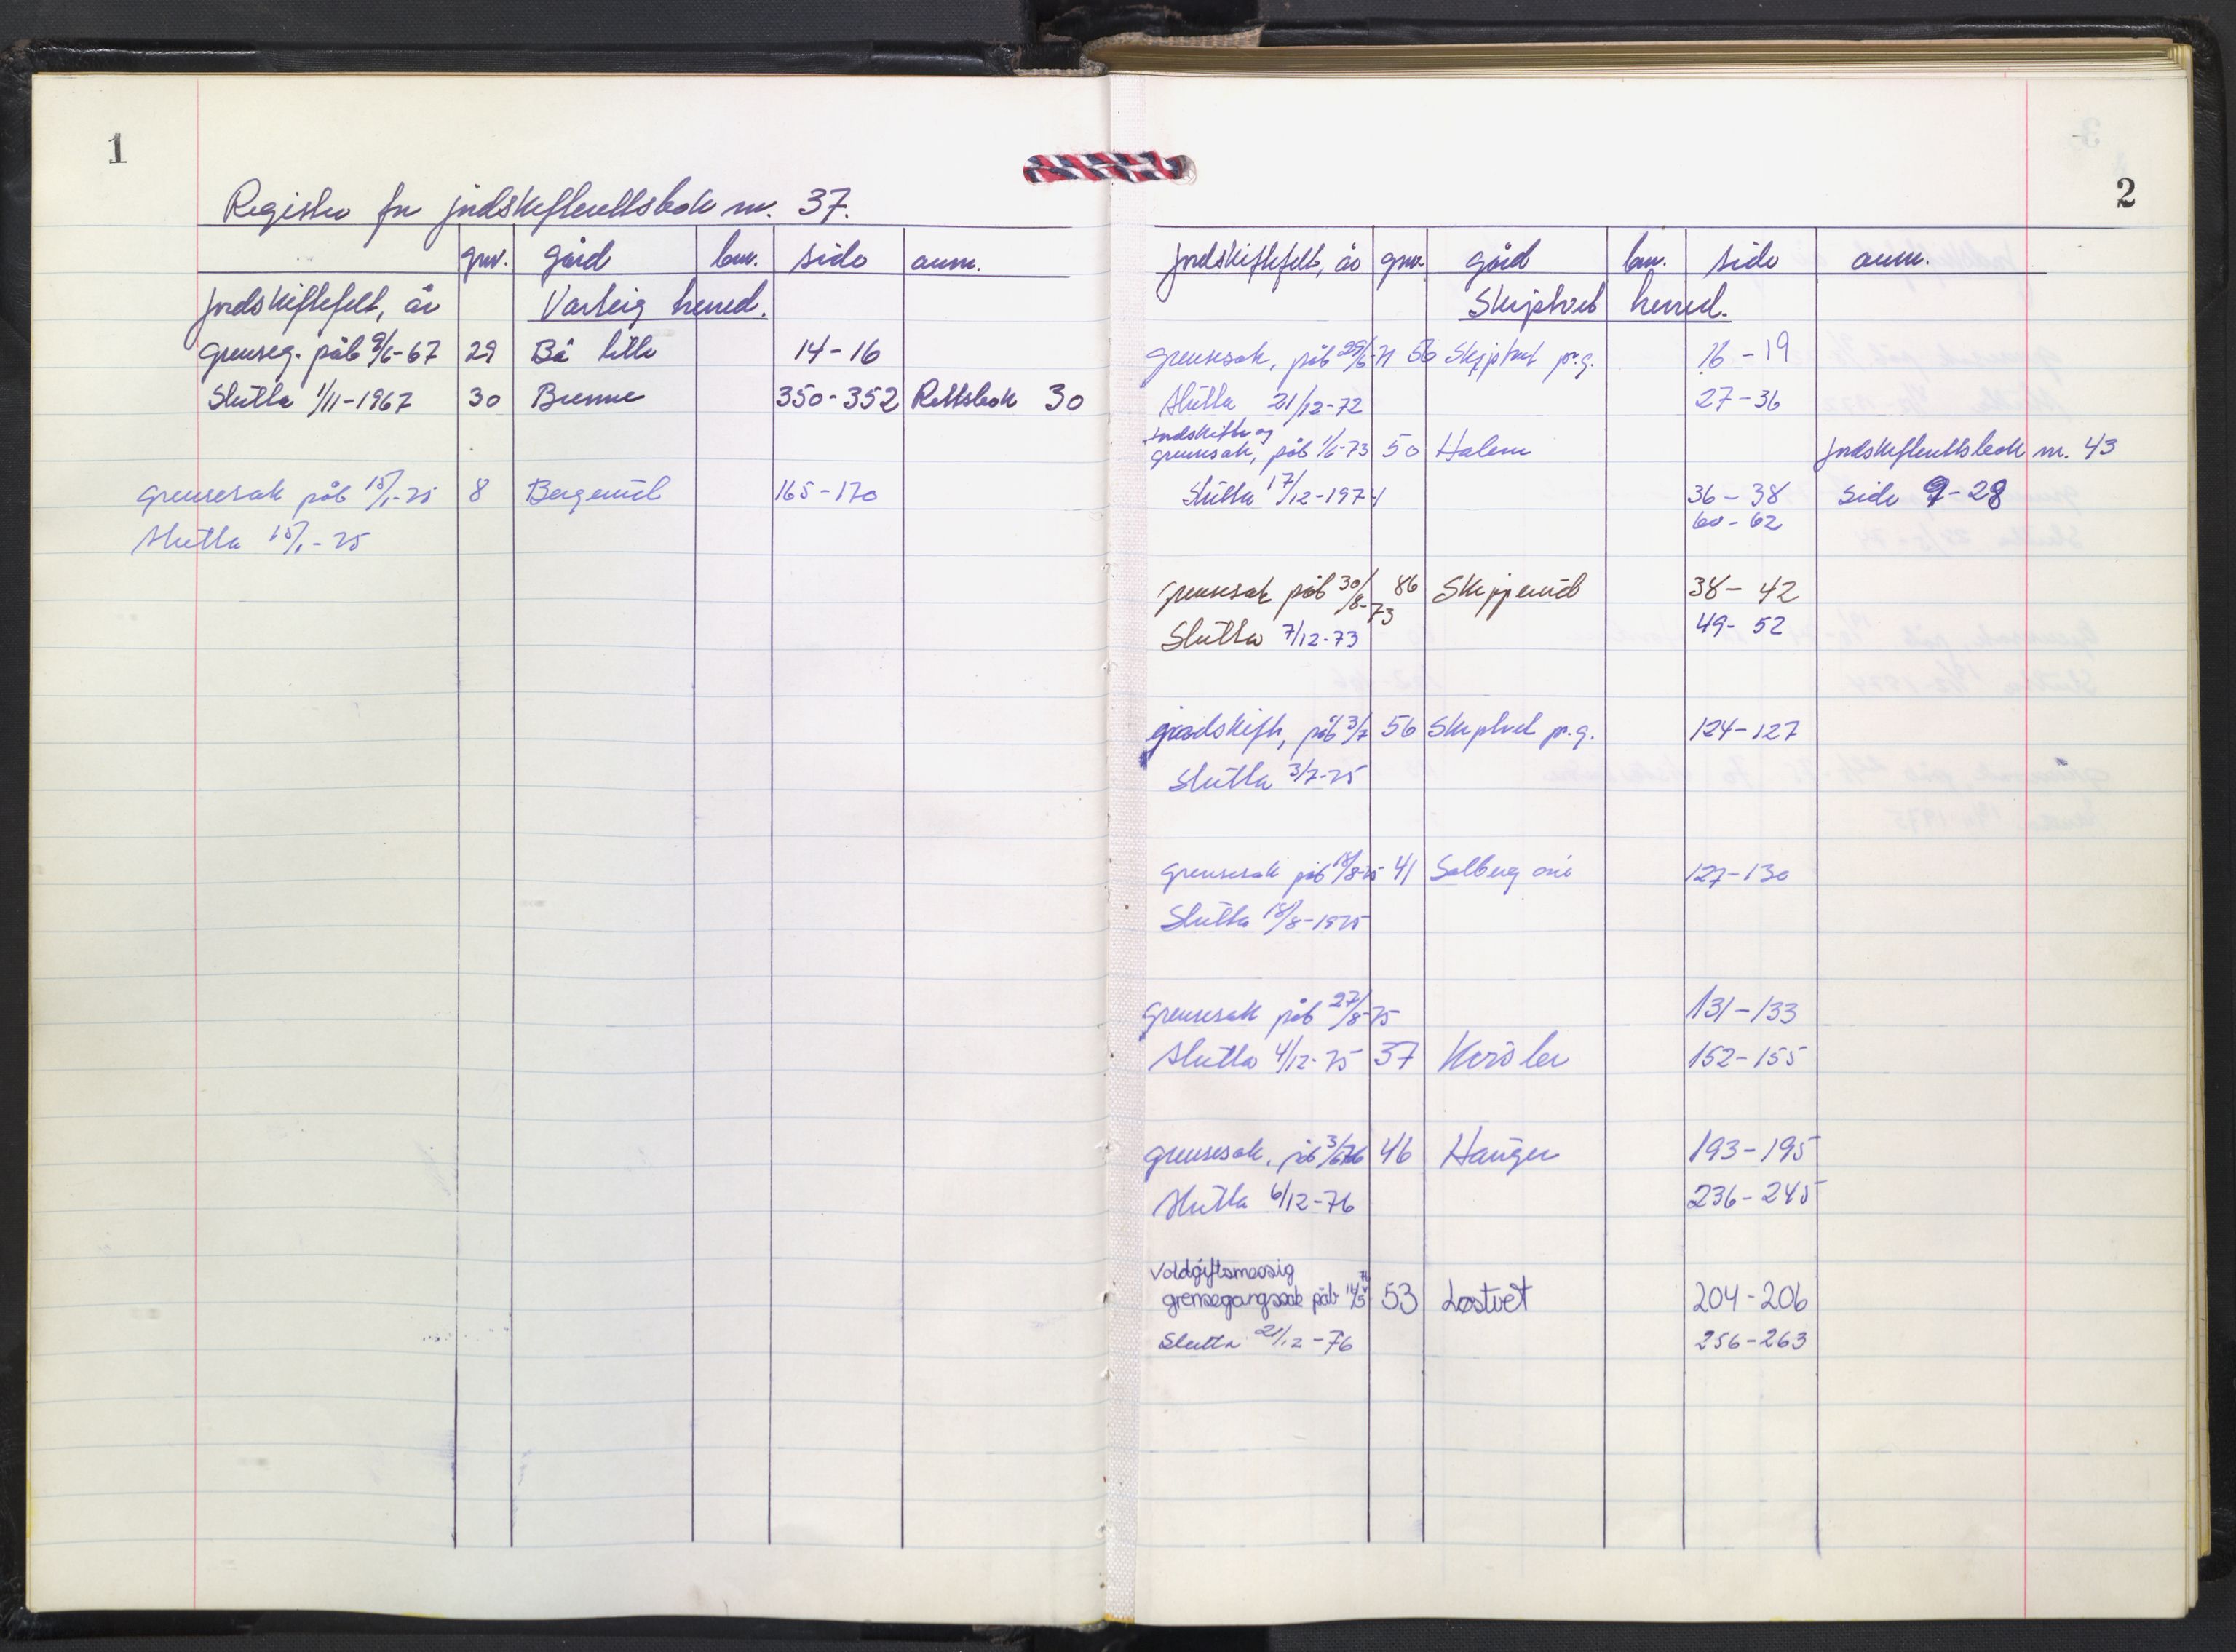 1
Register for jordskifterettsbok nr. 37.
gnr. gård bnr. side anm.
Jordskiftefelt, år Varteig herred.
grenseg. påb 9/6-67 29 Bø lille 14-16
Slutta 1/11-1967 30 Brenne 350-352 Rettsbok 30
grensesak påb 15/1-75 8 Bergerud 165-170
Slutta 15/1-75
2
Jordskiftefelt, år gnr. gård bnr. side anm.
Skiptvet herred.
grensesak, påb 25/6-71 56 Skiptvet pr.g. 16-19
Slutta 21/12-72 27-36
Jordskifte og
grensesak, påb 1/6-73 50 Halem Jordskifterettsbok nr. 43
Slutta 17/12-1974 36-38 side 9-28
60-62
grensesak påb 30/8-73 86 Skipperud 38-42
Slutta 7/12-73 49-52
jordskifte, påb 3/7 56 Skiptvet pr.g. 124-127
Slutta 3/7-75
grensesak påb 18/8-75 41 Solberg 127-130
Slutta 18/8-1975
grensesak påb 27/8-75 131-133
Slutta 4/12-75 37 152-155
grensesak, påb 3/6-76 46 Hauger 193-195
Slutta 6/12-76 236-245
Voldgiftsmessig
grensegangssak påb 14/5 76 53 Løstvet 204-206
Slutta 21/12-76 256-263